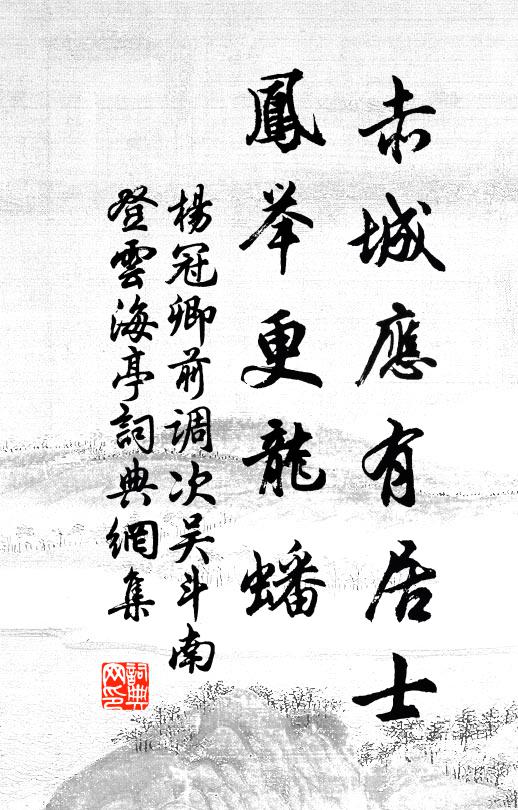 赤城應有居士
鳳举更龍蟠
楊冠卿前调次吴斗南
登雲海亭詞典網集
詞典网印